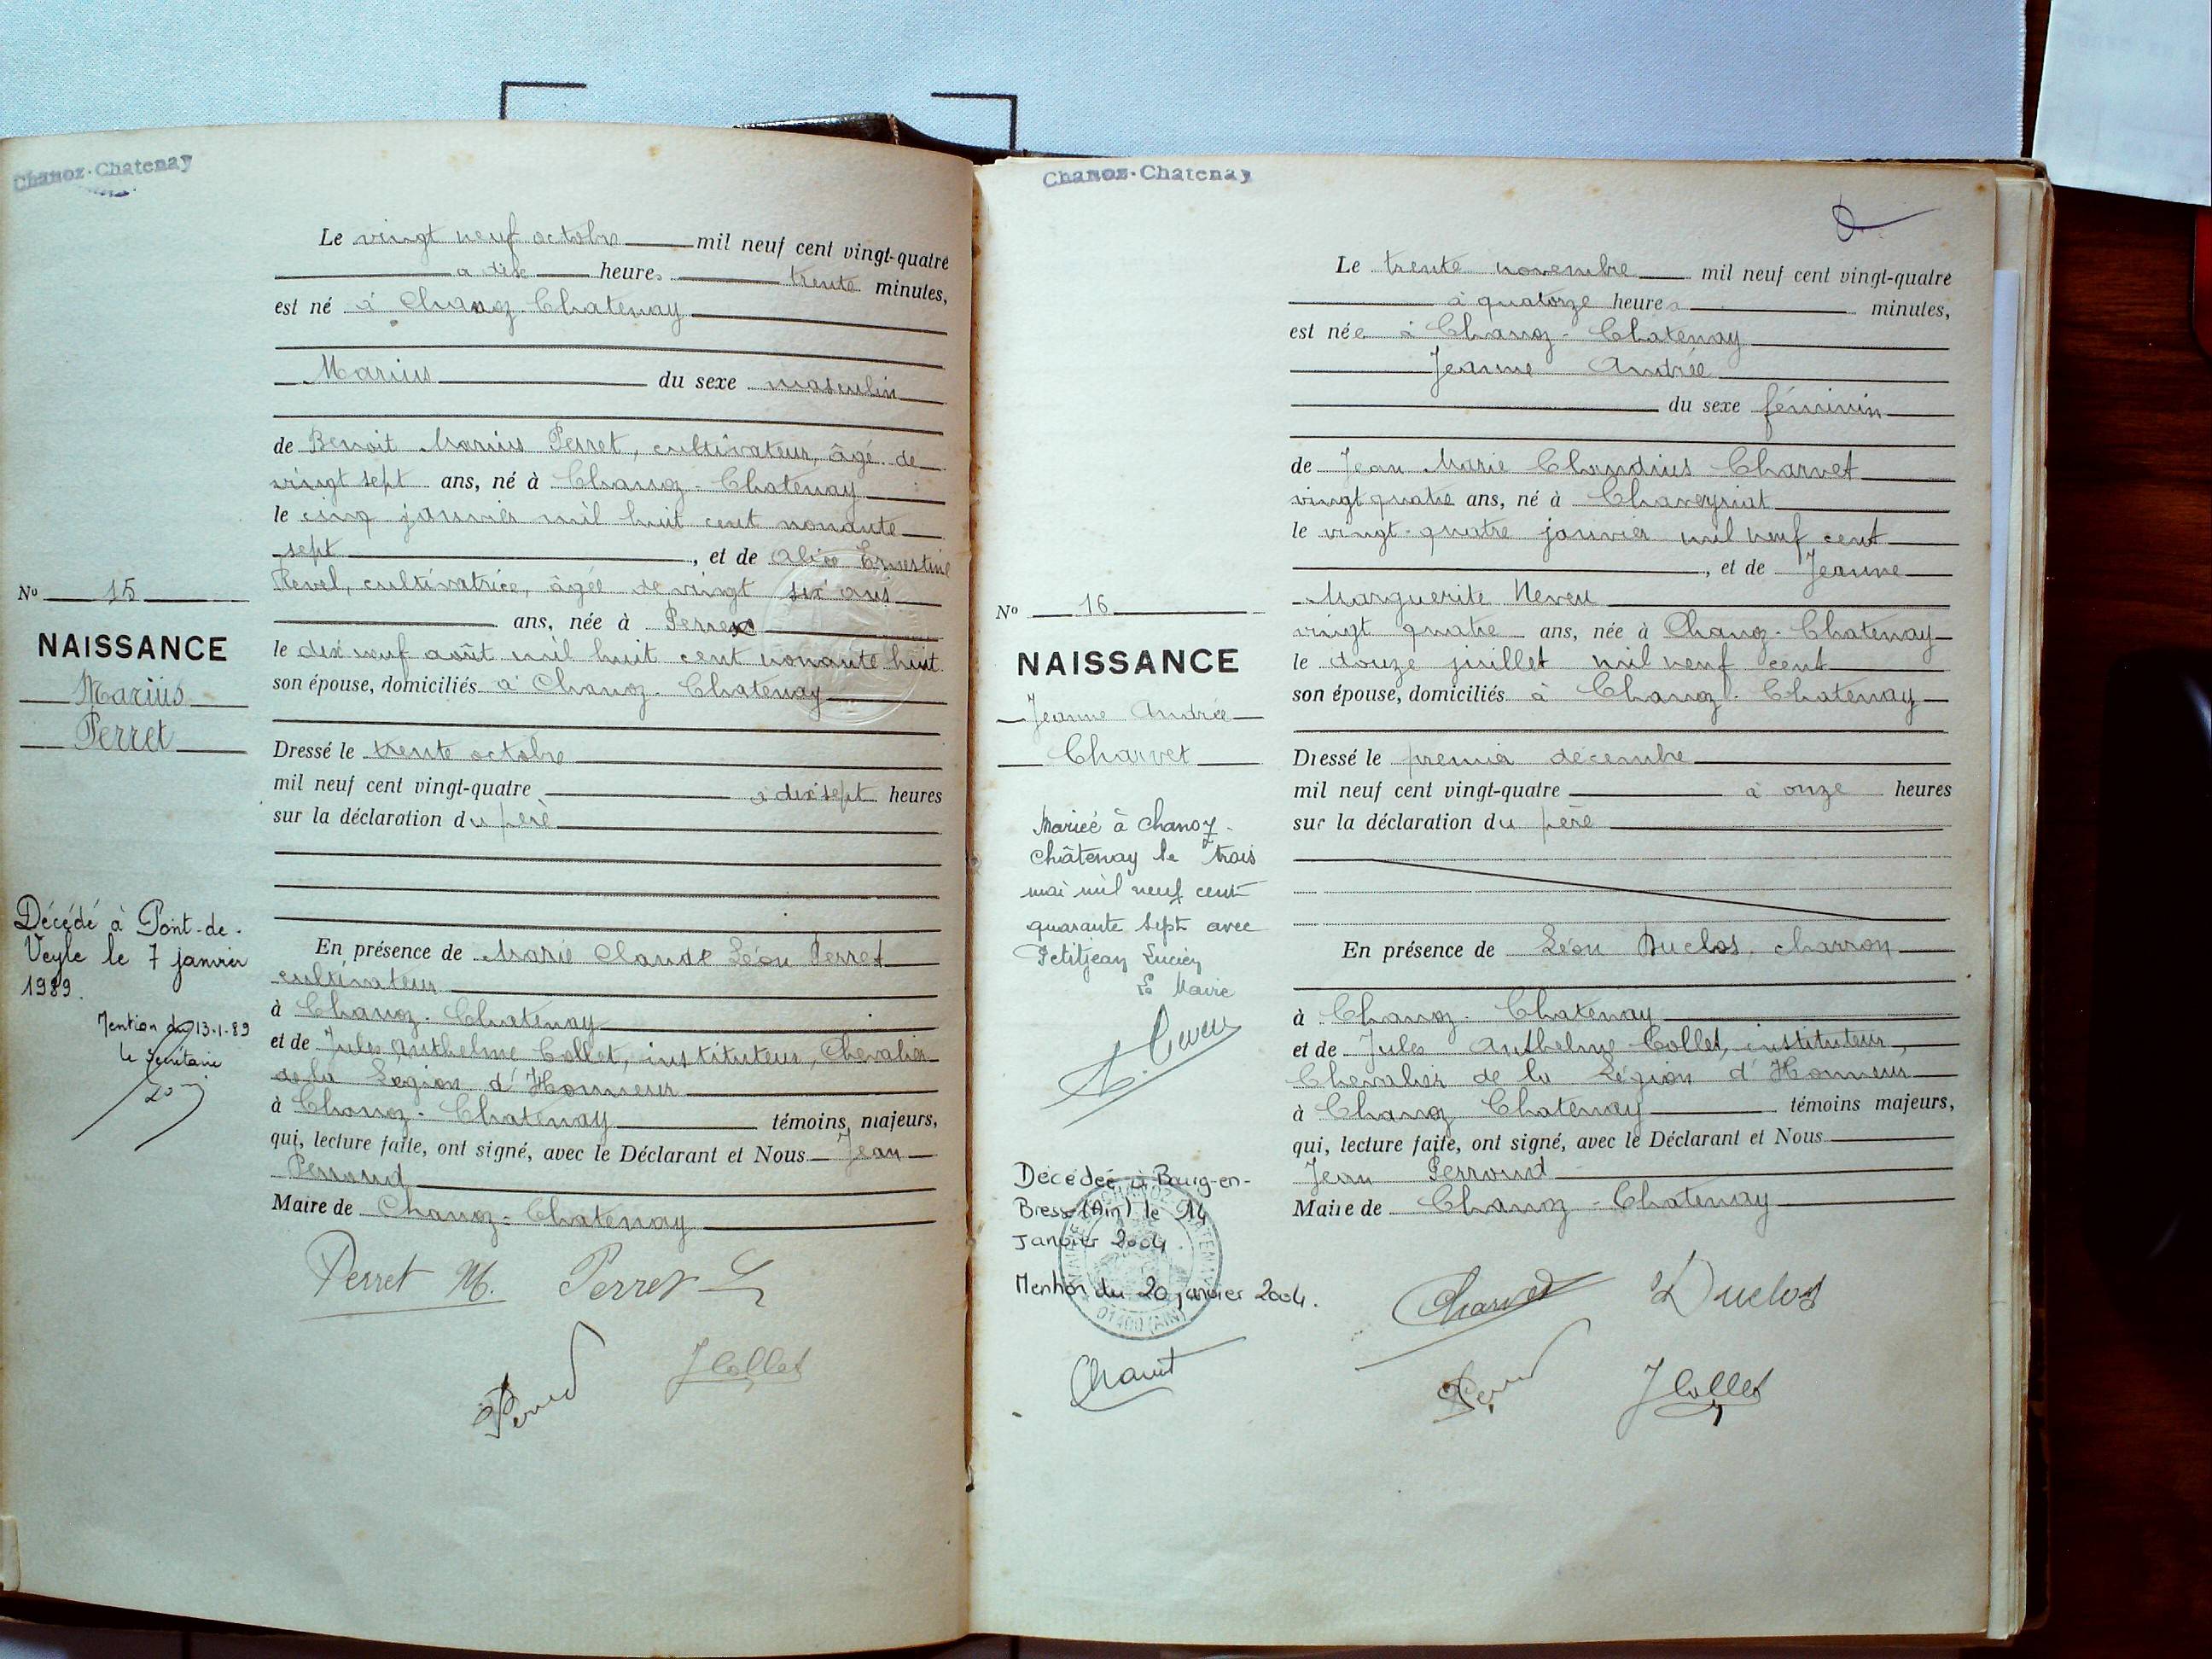 Chanoz-Chatenay
Le vingt neuf octobre mil neuf cent vingt-quatre
a dix heures trente minutes,
est né à Chanoz-Chatenay
Marius du sexe masculin
de Benoit Marius Perret, cultivateur, âgé de
vingt sept ans, né à Chanoz-Chatenay
le cinq janvier mil huit cent nonante
sept, et de Alice Ernestine
Revel, cultivatrice, âgée de vingt six ans
ans, née à Perrex
le dix neuf août mil huit cent nonante huit
son épouse, domiciliés à Chanoz-Chatenay
Dressé le trente octobre
mil neuf cent vingt-quatre à dix sept heures
sur la déclaration du père
En présence de Marie Claude Léon Perret
cultivateur
à Chanoz-Chatenay
et de Jules Anthelme Collet, instituteur, Chevalier
de la Légion d'Honneur
à Chanoz-Chatenay témoins majeurs,
qui, lecture faite, ont signé, avec le Déclarant et Nous Jean
Perroud
Maire de Chanoz-Chatenay
Perret M. Perret L
JCollet
No 15
NAISSANCE
Marius
Perret
Décédé à Pont-de-
Veyle le 7 janvier
1989.
Mention du 13-1-89
le secrétaire
Chanoz-Chatenay
Le trente novembre mil neuf cent vingt-quatre
à quatorze heures minutes,
est née à Chanoz-Chatenay
Jeanne Andrée
du sexe féminin
de Jean Marie Claudius Charvet
vingt quatre ans, né à Chaveyriat
le vingt-quatre janvier mil neuf cent
, et de Jeanne
Marguerite Neveu
vingt quatre ans, née à Chanoz-Chatenay
le douze juillet mil neuf cent
son épouse, domiciliés à Chanoz-Chatenay
Dressé le premier décembre
mil neuf cent vingt-quatre à onze heures
sur la déclaration du père
En présence de Léon Duclos, charron
à Chanoz-Chatenay
et de Jules Anthelme Collet, instituteur,
Chevalier de la Légion d'Honneur
à Chanoz Chatenay témoins majeurs,
qui, lecture faite, ont signé, avec le Déclarant et Nous
Jean Perroud
Maire de Chanoz-Chatenay
Charvet Duclos
JCollet
No 16
NAISSANCE
Jeanne Andrée
Charvet
Mariée à Chanoz-
Châtenay le trois
mai mil neuf cent
quarante sept avec
Petitjean Lucien
Le Maire
Décédée à Bourg-en-
Bresse (Ain) le 14
Janvier 2004.
Mention du 20 janvier 2004.
01400 (AIN)